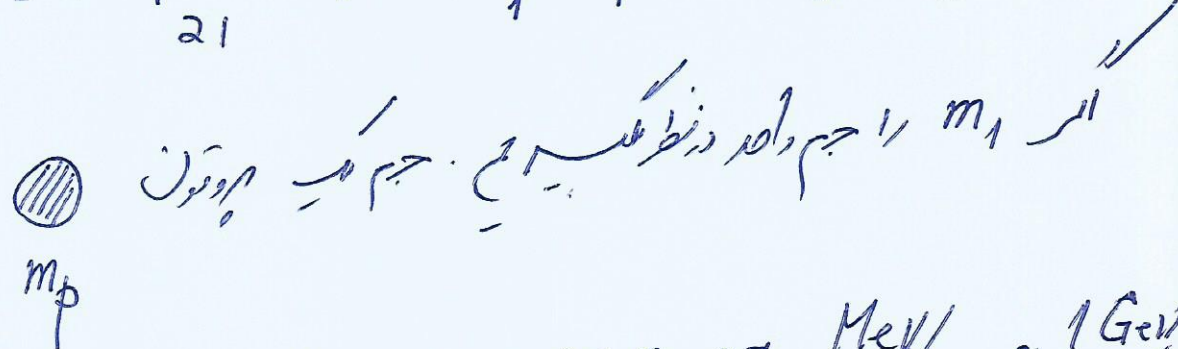 21
اگر m1 را جرم واحد در نظر بگیریم. جرم یک پروتون
mp
MeV/ 1 GeV/